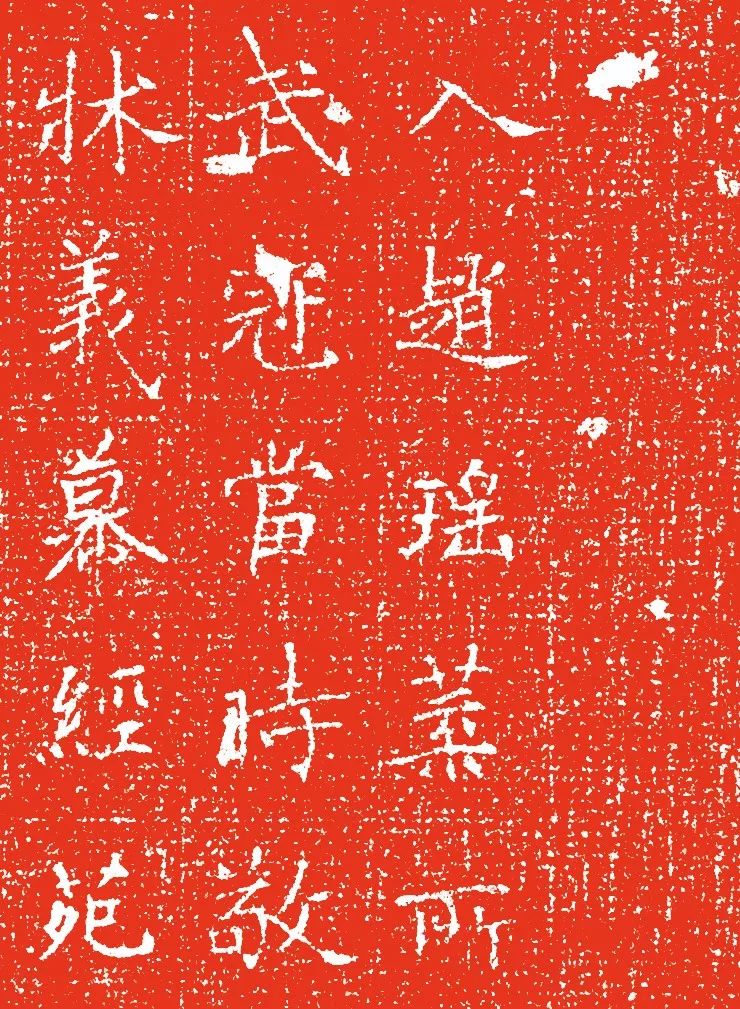 入趙瑤葉所
武當時敬
狀義慕經苑